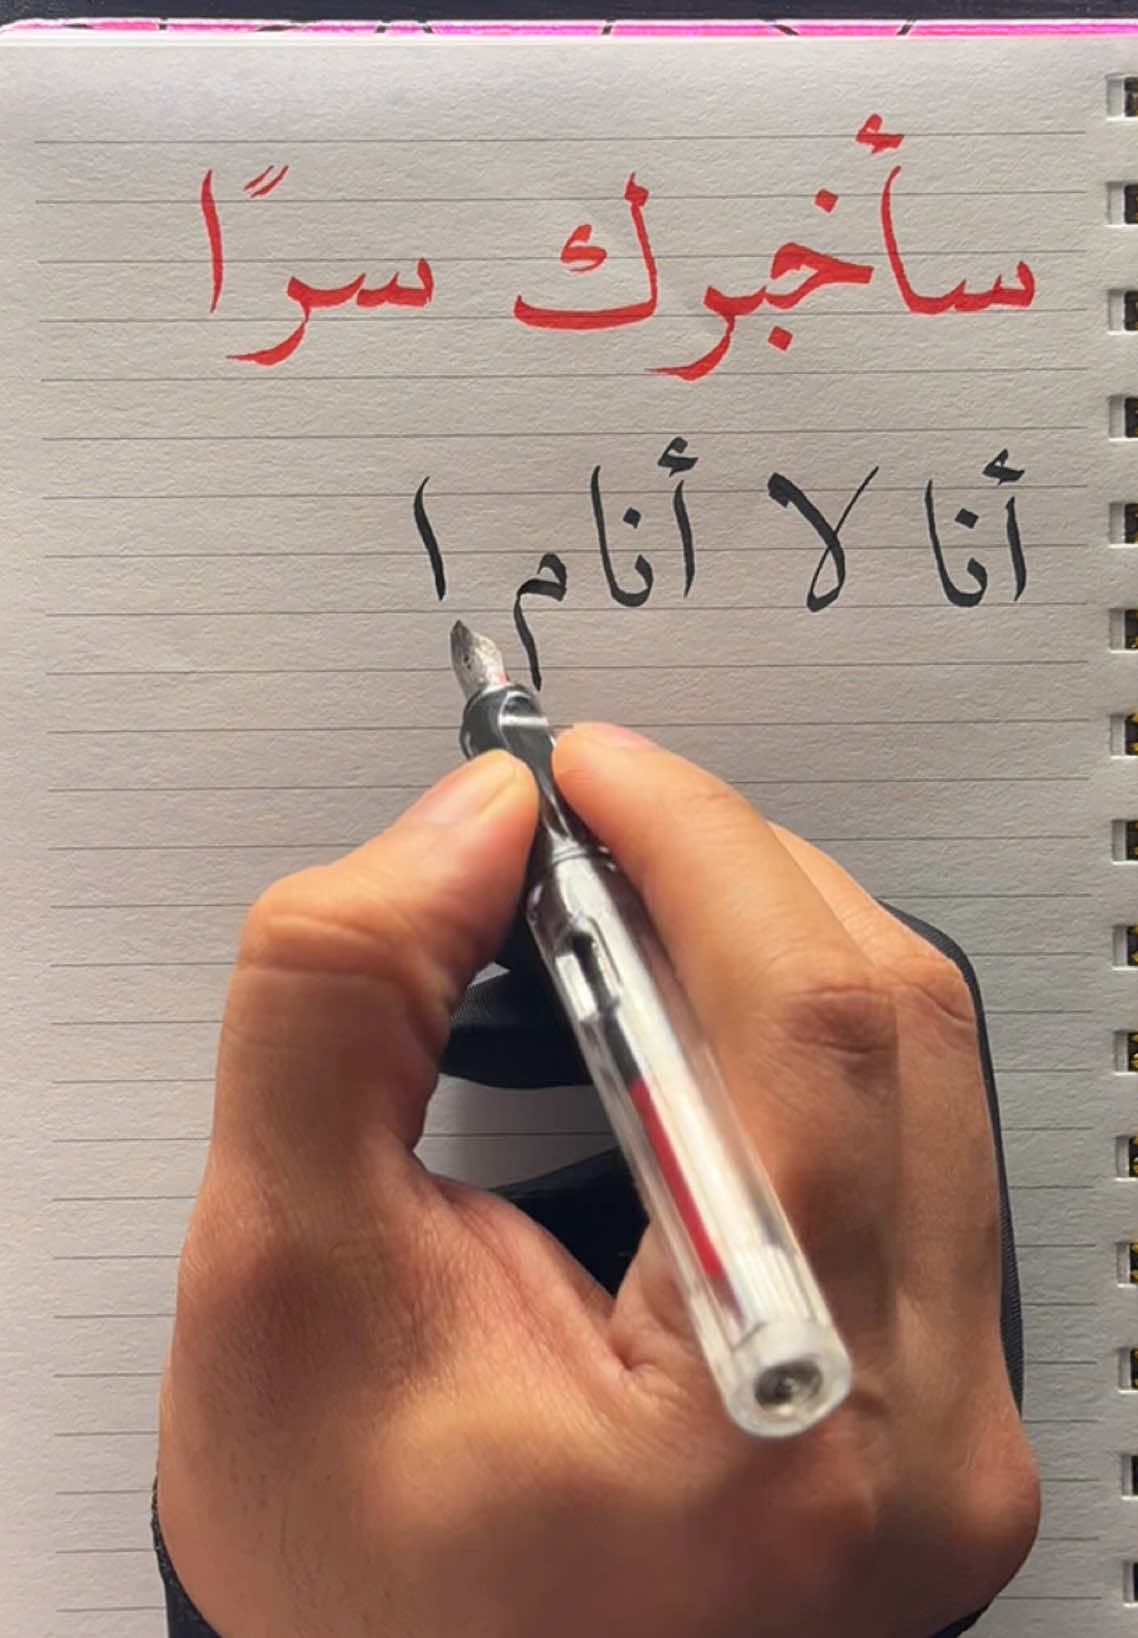 سأخبرك سرًا
أنا لا أنام ا